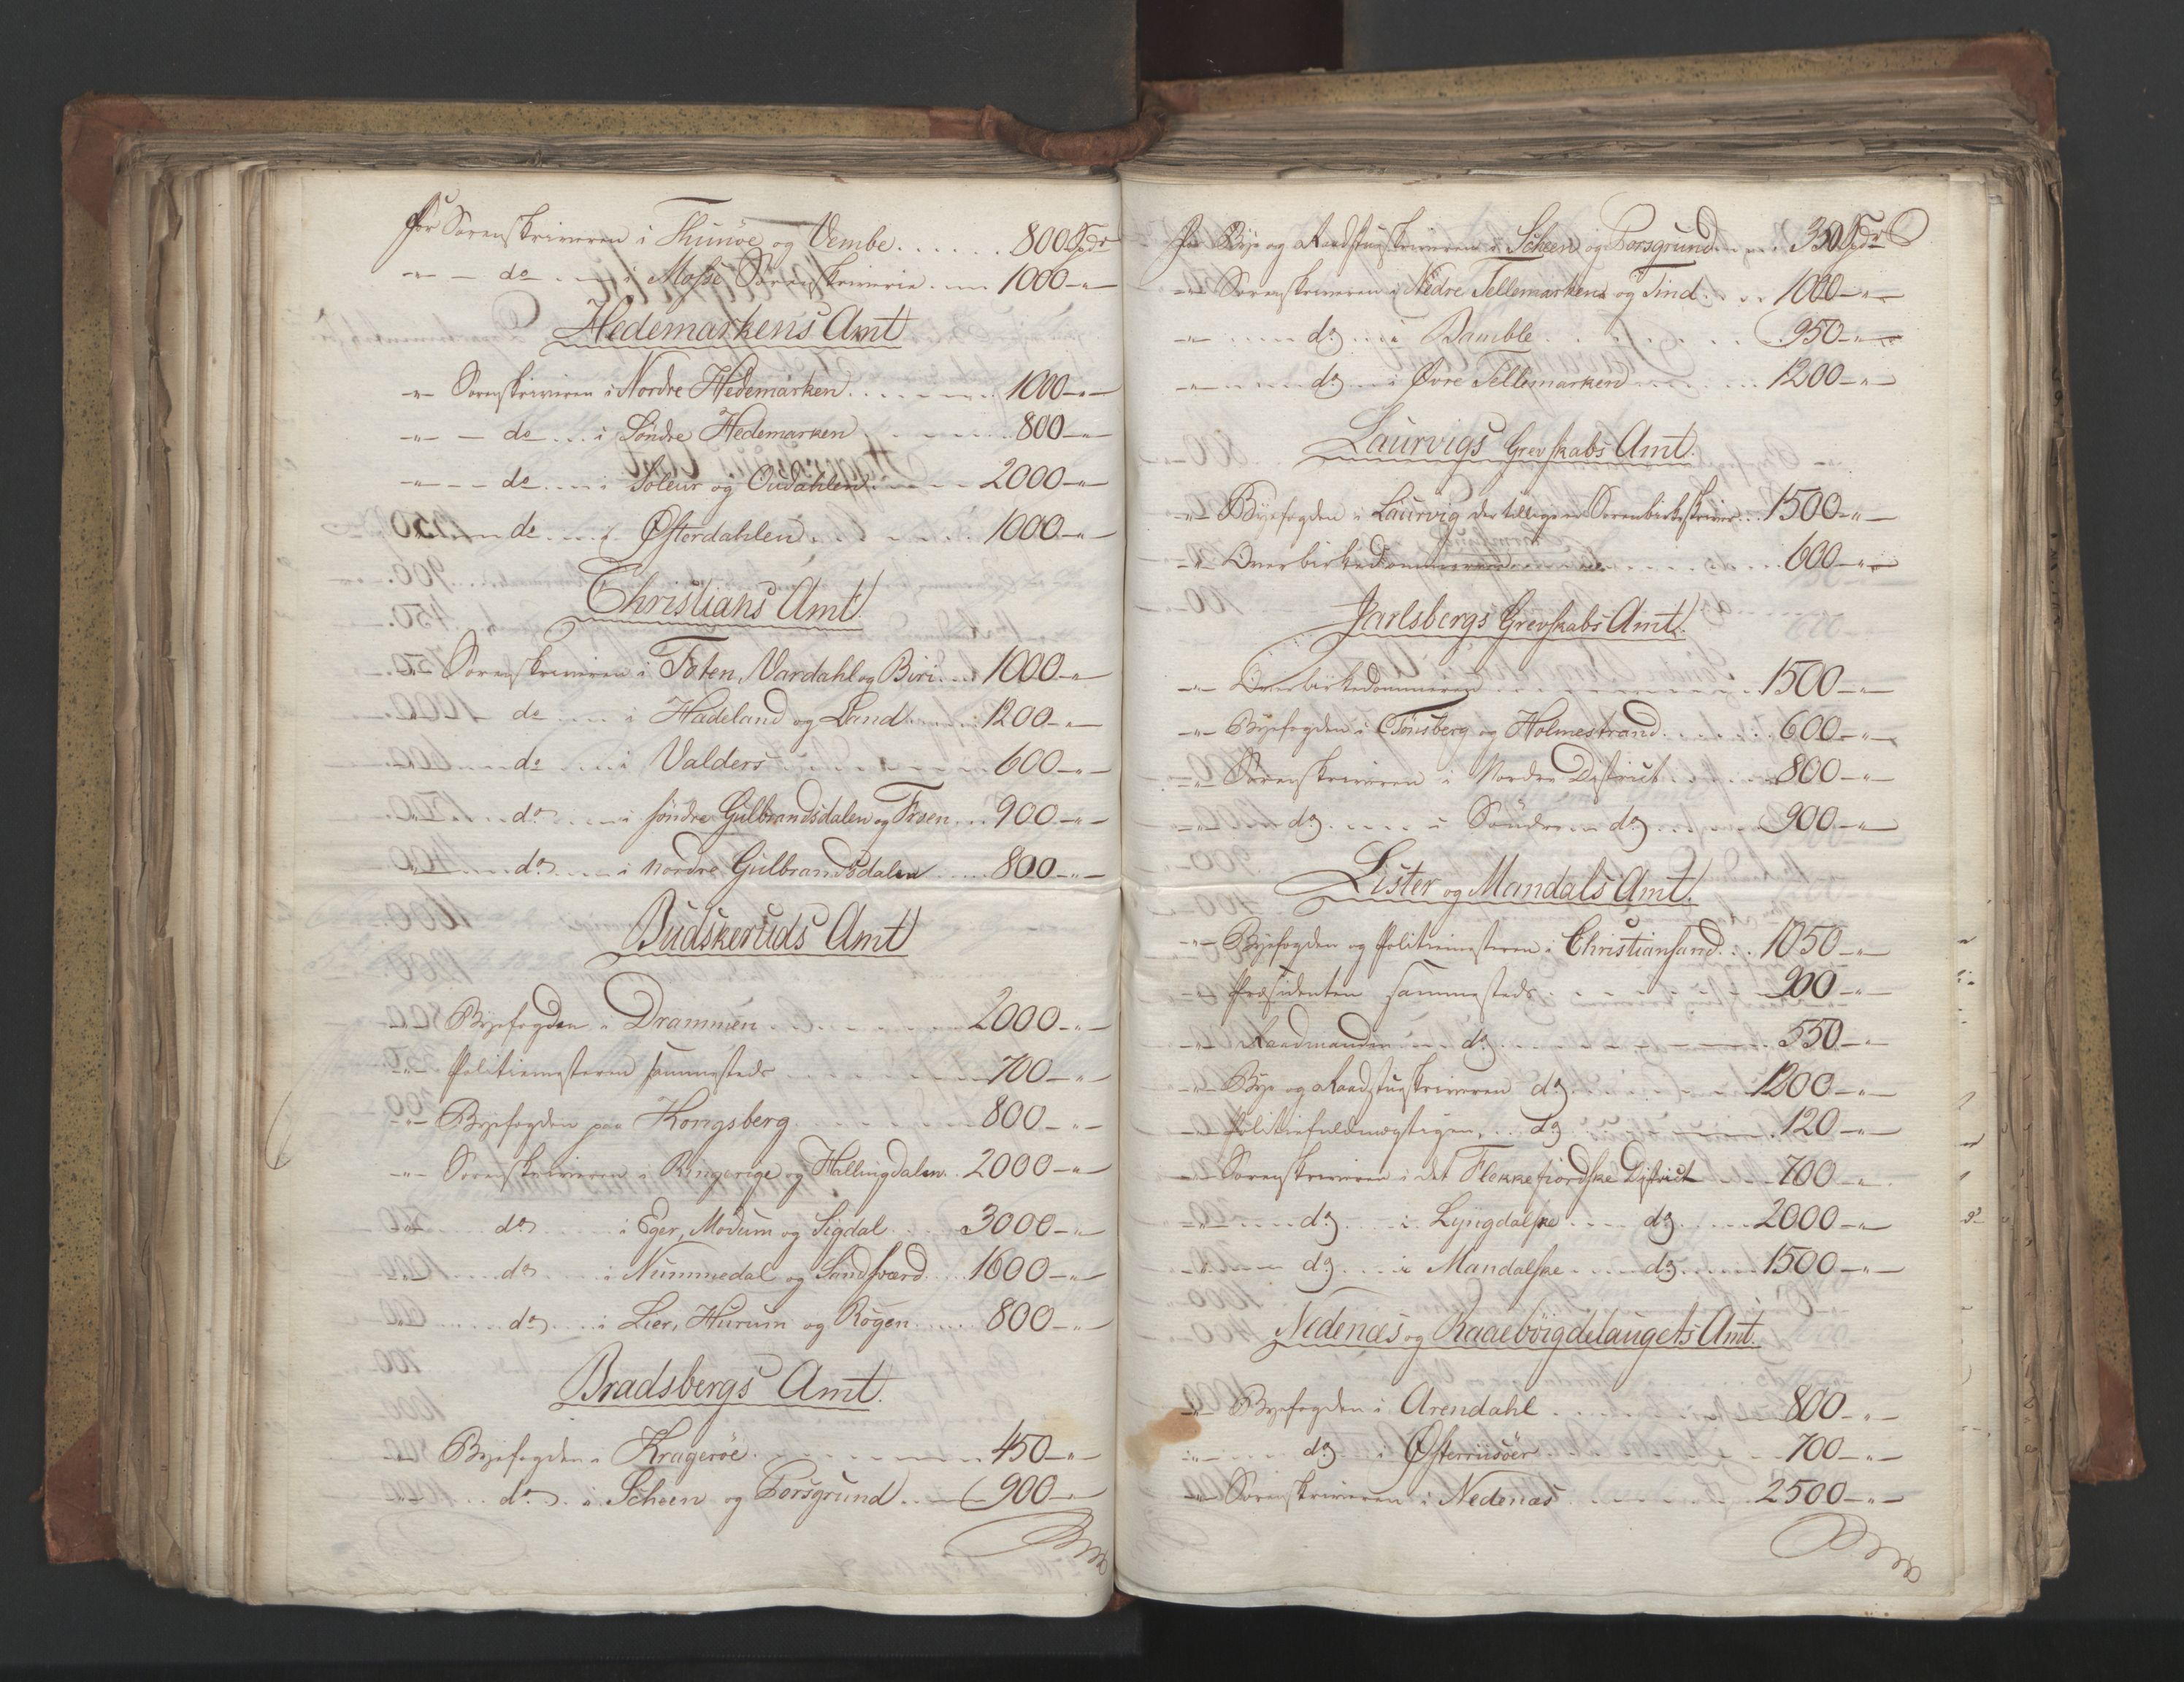 for Sorenskriveren i Thunøe og Vembe . . . . . . 800 Spdr
-"- — do — i Mosse Sorenskriverie . — 1000-"-
Hedemarkens Amt
-"- Sorenskriveren i Nordre Hedemarken . . . . . 1000-"-
-"- — do . . . i Söndre Hedemarken . . . . . 800-"-
-"- — do . . . i Soleur og Oudahlen . . . . 2000-"-
-"- do . . . i Østerdahlen . . . . . 1000-"-
Christians Amt
-"- Sorenskriveren i Toten, Vardahl og Biri . . . 1000-"-
-"- do . . . i Hadeland og Land . . . 1200-"-
-"- do . . . i Valders . . . . 600-"-
-"- do . . . i söndre Gulbrandsdalen og Froen . . . 900-"-
-"- do . . . i nordre Gulbrandsdalen . . . 800-"-
Budskeruds Amt
-"- Byefogden i Drammen . . . . . 2000-"-
-"- Politiemesteren sammesteds . . . . . 700-"-
-"- Byefogden paa Kongsberg . . . . . 800-"-
-"- Sorenskriveren i Ringerige og Hallingdalen . . 2000-"-
-"- do . . . i Eger, Modum og Sigdal . . . 3000-"-
-"- do . . . i Nummedal og Sandsværd . . . 1600-"-
-"- do . . . i Lier, Hurum og Rögen . . . 800-"-
Bradsbergs Amt.
-"- Byefogden i Kragerøe . . . . . 450-"-
-"- do . . i Scheen og Porsgrund . . . 900-"-
for Bye og Raadstueskriveren i Scheen og Porsgrund . . . 350 Spdr
-"- Sorenskriveren i Nedre Tellemarken og Tind . . . 1000-"-
-"- do . . . i Bamble . . . . . 950-"-
-"- do . . . i Øvre Tellemarken . . . . 1200-"-
Laurvigs Grevskabs Amt.
-"- Byefogden i Laurvig der tillige er Sorenbirkeskriver . . 1500-"-
-"- Overbirkedommeren . . . . . 600-"-
Jarlsbergs Grevskabs Amt.
-"- Overbirkedommeren . . . . . 1500-"-
-"- Byefogden i Tønsberg og Holmestrand . . . . . 600-"-
-"- Sorenskriveren i Nordre District . . . . 800-"-
-"- do . . . i Söndre do . . . . 900-"-
Lister og Mandals Amt.
-"- Byefogden og Politiemesteren i Christiansand . . . 1050-"-
-"- Præsidenten sammesteds . . . . . 900-"-
-"- Raadmanden . . . do . . . . . 550-"-
-"- Bye og Raadstueskriveren do . . . . 1200-"-
-"- Politiefuldmægtigen . . do . . . . 120-"-
-"- Sorenskriveren i det Flekkefiordske District . . . 700-"-
-"- do . . . i Lyngdalske . . . do . . . 2000-"-
-"- do . . . i Mandalske . . . do . . . 1500-"-
Nedenæs og Raaeböigdelaugets Amt.
-"- Byefogden i Arendahl . . . . . 800-"-
-"- do . . i Østerriisöer . . . . . 700-"-
-"- Sorenskriveren i Nedenæs . . . . . 2500-"-